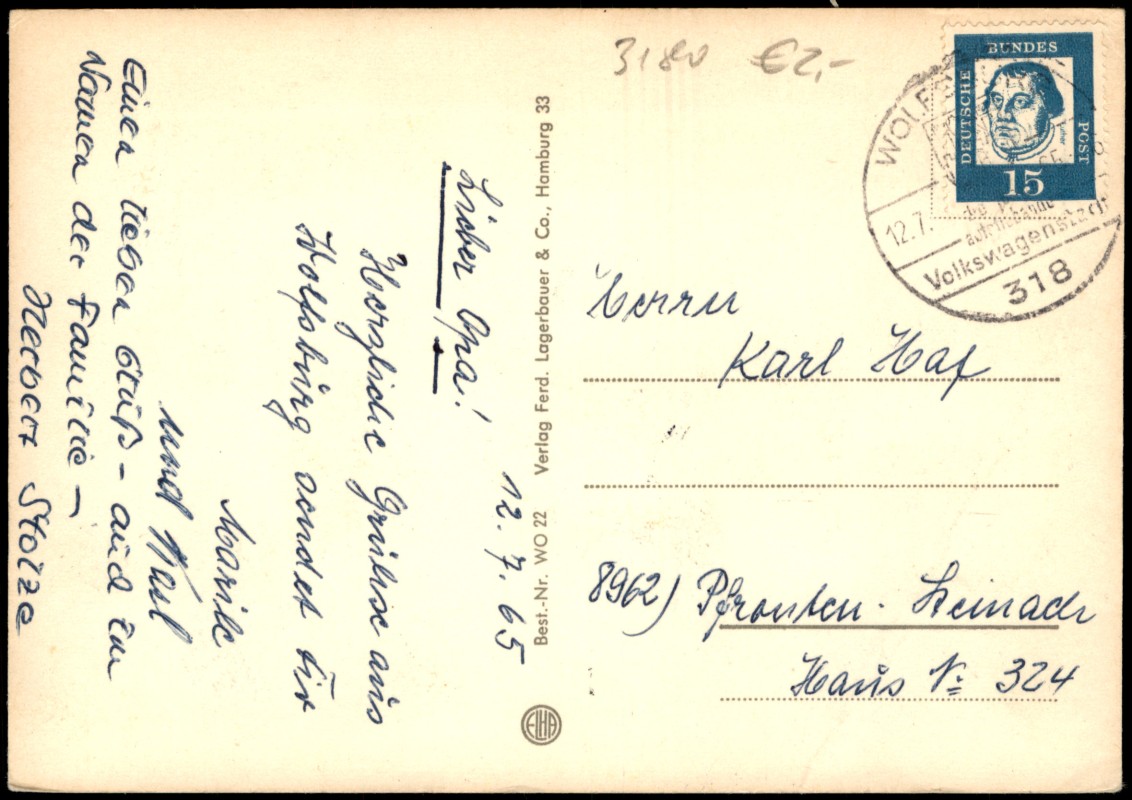 12. 7. 65
Lieber Opa!
Herzliche Grüße aus
Wolfsburg sendet dir
Marile
und Karl
Einen lieben Gruß - auch im
Namen der Familie -
Herbert Stolze
Best.-Nr. WO 22 Verlag Ferd. Lagerbauer & Co., Hamburg 33
ELHA
3180 €2,-
DEUTSCHE BUNDES POST
Luther
15
WOLF
12.7.
Volkswagenstadt
318
Herrn
Karl Haf
8962) Pfronten - Steinach
Haus № 324